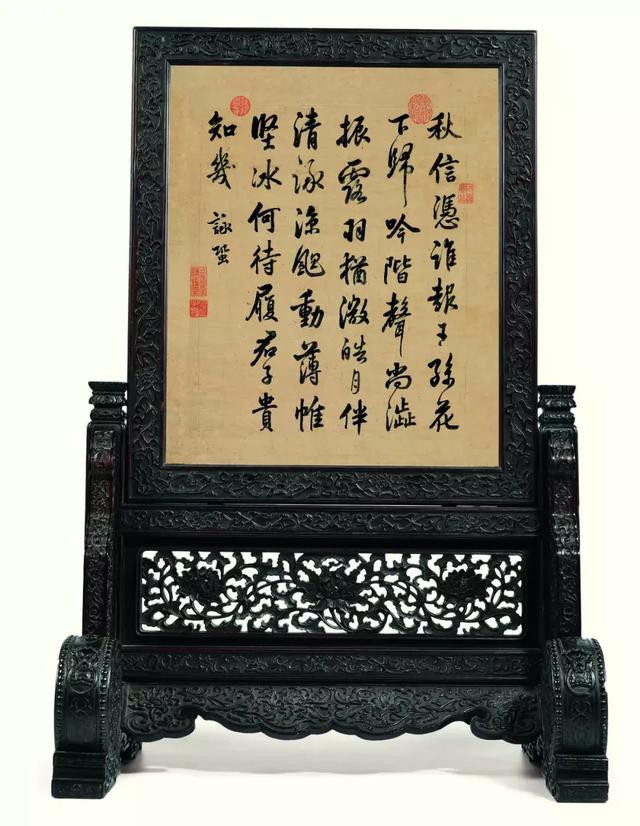 秋信憑誰報王孫花
下歸吟階聲尚澁
振露羽猶微皓月伴
清漏涼飇動薄帷
堅冰何待履君子貴
知幾 詠蛩